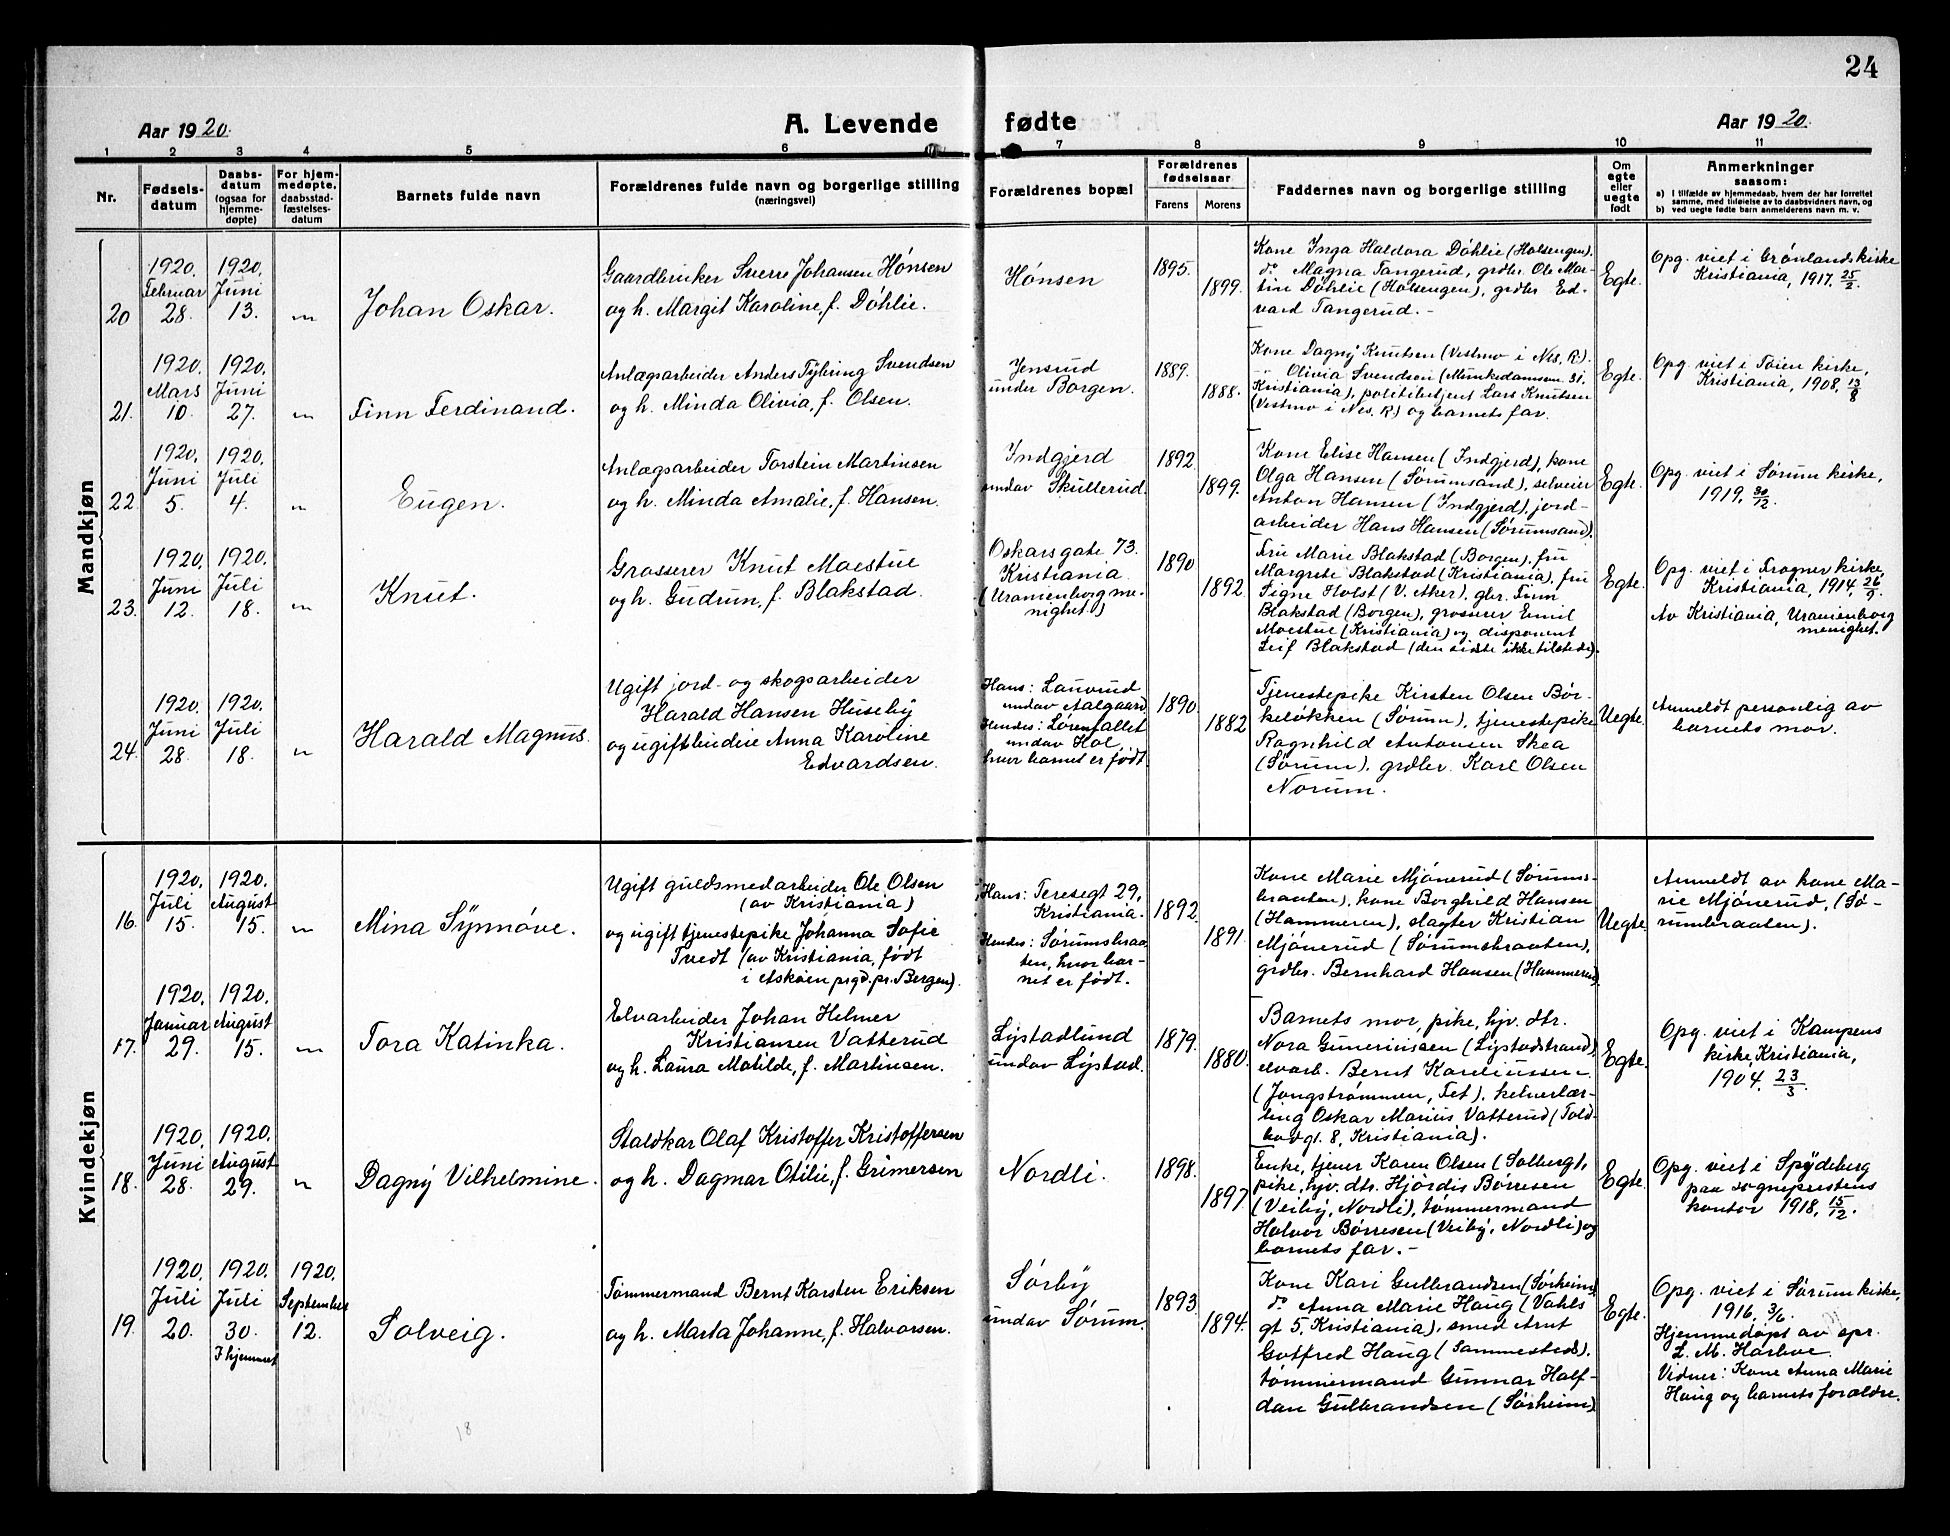 24
Aar 1920.
A. Levende fødte
Aar 1920.
1 2 3 4 5 6 7 8 9 10 11
Nr.
Fødsels-
datum
Daabs-
datum
(ogsaa for
hjemme-
døpte)
For hjem-
medøpte,
daabsstad-
fæstelses-
datum
Barnets fulde navn
Forældrenes fulde navn og borgerlige stilling
(næringsvei)
Forældrenes bopæl
Forældrenes
fødselsaar
Farens Morens
Faddernes navn og borgerlige stilling
Om
ægte
eller
uegte
født
Anmerkninger
saasom:
a) I tilfælde av hjemmedaab, hvem der har forrettet
samme, med tilføielse av to daabsvidners navn, og
b) ved uegte fødte barn anmelderens navn m. v.
Mandkjøn
20
1920.
Februar
28.
1920.
Juni
13.
"
Johan Oskar.
Gaardbruker Sverre Johansen Hønsen
og h. Margit Karoline, f. Døhlie.
Hønsen
1895.
1899.
Kone Inga Haldora Døhlie (Holsengen),
do Magna Tangerud, grdbr. Ole Mar-
tin Døhlie (Holsengen), grdbr. Ed-
vard Tangerud. -
Egte.
Opg. viet i Grønlands kirke
Kristiania, 1917, 25/2.
21.
1920.
Mars
10.
1920.
Juni
27.
"
Finn Ferdinand.
Anlægsarbeider Anders Tybring Svendsen
og h. Minda Olivia, f. Olsen.
Jensrud
under Borgen.
1889.
1888.
Kone Dagny Knutsen (Vestmo i Nes, R.)
" Olivia Svendsen (Munkedamsvn. 31,
Kristiania), politibetjent Lars Knutsen
(Vestmo i Nes, R) og barnets far.
Egte.
Opg. viet i Tøien kirke,
Kristiania, 1908, 13/8
22.
1920.
Juni
5.
1920.
Juli
4.
"
Eugen.
Anlægsarbeider Torstein Martinsen
og h. Minda Amalie, f. Hansen.
Indgjerd
undav Skullerud.
1892.
1899.
Kone Elise Hansen (Indgjerd), kone
Olga Hansen (Sørumsand), selveier
Anton Hansen (Indgjerd), jord-
arbeider Hans Hansen (Sørumsand).
Egte.
Opg. viet i Sørum kirke,
1919, 30/12.
23.
1920.
Juni
12.
1920.
Juli
18.
"
Knut.
Grosserer Knut Moestue
og h. Gudrun, f. Blakstad.
Oskarsgate 73.
Kristiania.
(Uranienborg me-
nighet.)
1890
1892.
Fru Marie Blakstad (Borgen), fru
Margrete Blakstad (Kristiania), fru
Signe Holst (V. Aker), gbr. Finn
Blakstad (Borgen), grosserer Emil
Moestue (Kristiania) og disponent
Leif Blakstad (den sidste ikke tilstede).
Egte.
Opg. viet i Frogner kirke,
Kristiania, 1914, 26/9.
Av Kristiania, Uranienborg
menighet.
24.
1920.
Juni
28.
1920.
Juli
18.
"
Harald Magnus.
Ugift jord- og skogsarbeider
Harald Hansen Huseby
og ugift budeie Anna Karoline
Edvardsen.
Hans: Lauvrud
undav Aalgaard,
Hendes: Lørenfallet
undav Hol,
hvor barnet er født.
1890.
1882
Tjenestepike Kirsten Olsen Bør-
keløkken (Sørum), tjenestepike
Ragnhild Antonsen Skea
(Sørum), grdbr. Karl Olsen
Norum.
Uegte.
Anmeldt personlig av
barnets mor.
Kvindekjøn
16.
1920.
Juli
15.
1920.
August
15.
"
Mina Synnøve.
Ugift guldsmedarbeider Ole Olsen
(av Kristiania)
og ugift tjenestepike Johanna Sofie
Tvedt (av Kristiania, født
i Askøien prgd. pr. Bergen).
Hans: Teresegt 29,
Kristiania.
Hendes: Sørumsbraa-
ten, hvor bar-
net er født.
1892.
1891.
Kone Marie Mjønerud (Sørums-
braaten), kone Borghild Hansen
(Hammeren), slagter Kristian
Mjønerud (Sørumsbraaten),
grdbr. Bernhard Hansen (Hammeren).
Uegte.
Anmeldt av kone Ma-
rie Mjønerud, (Sø-
rumbraaten).
17.
1920.
Januar
29.
1920.
August
15.
"
Tora Katinka.
Elvarbeider Johan Helmer
Kristiansen Vatterud
og h. Laura Matilde, f. Martinsen.
Lystadlund
undav Lystad.
1879.
1880.
Barnets mor, pike, hjv. dtr.
Nora Gunerivssen (Lystadstrand),
elvarb. Bernt Kareliussen
(Jongstrømmen, Fet), kelnerlær-
ling Oskar Marius Vatterud (Told-
bodgt. 8, Kristiania).
Egte.
Opg. viet i Kampens
kirke, Kristiania,
1904, 23/3.
18.
1920.
Juni
28.
1920.
August
29.
"
Dagny Vilhelmine.
Staldkar Olaf Kristoffer Kristoffersen
og h. Dagmar Otilie, f. Grimersen
Nordli.
1898.
1897.
Enke, tjener Karen Olsen (Solberg),
pike, hjv. dtr. Hjørdis Børresen
(Veiby, Nordli), tømmermand
Halvor Børresen (Veiby, Nordli) og
barnets far. -
Egte.
Opg. viet i Spydeberg
paa sogneprestens
kontor 1918, 15/12.
19.
1920.
Juli
20.
1920.
Juli
30.
I hjemmet
1920.
September
12.
Solveig.
Tømmermand Bernt Karsten Eriksen
og h. Marta Johanne, f. Halvorsen.
Sørby
undav Sørum.
1893.
1894.
Kone Kari Gulbrandsen (Sørheim),
do Anna Marie Haug (Vahls
gt 5, Kristiania), smed Arnt
Gotfred Haug (Sammesteds),
tømmermand Gunnar Half-
dan Gulbrandsen (Sørheim)
Egte.
Opg. viet i Sørum kirke,
1916, 3/6.
Hjemmedøpt av spr.
L. M. Harboe.
Vidner: Kone Anna Marie
Haug og barnets forældre.
18